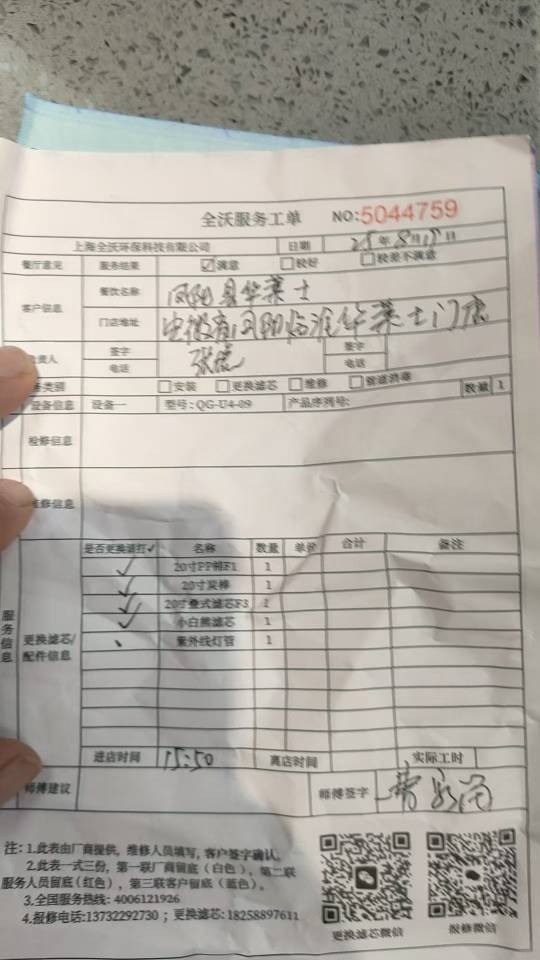 全沃服务工单 NO:5044759
上海全沃环保科技有限公司 日期 25年8月15日
餐厅意见 服务结果 ☑满意 □较好 □较差不满意
客户信息 餐饮名称 凤阳县华莱士
门店地址 安徽省凤阳临淮华莱士门店
负责人 签字 张虎 签字
电话 电话
服务类别 □安装 □更换滤芯 □维修 □管道消毒 数量 1
设备信息 设备一 型号:QG-U4-09 产品序列号:
检修信息
维修信息
服务信息
更换滤芯/配件信息
是否更换请打✓ 名称 数量 单价 合计 备注
✓ 20寸PP棉F1 1
✓ 20寸炭棒 1
✓ 20寸叠式滤芯F3 1
✓ 小白熊滤芯 1
紫外线灯管 1
进店时间 15:50 离店时间 实际工时
师傅建议 师傅签字
注:1.此表由厂商提供，维修人员填写，客户签字确认。
2.此表一式三份，第一联厂商留底（白色），第二联
服务人员留底(红色)，第三联客户留底（蓝色）。
3.全国服务热线: 4006121926
4.报修电话:13732292730 ; 更换滤芯: 18258897611
更换滤芯微信 报修微信